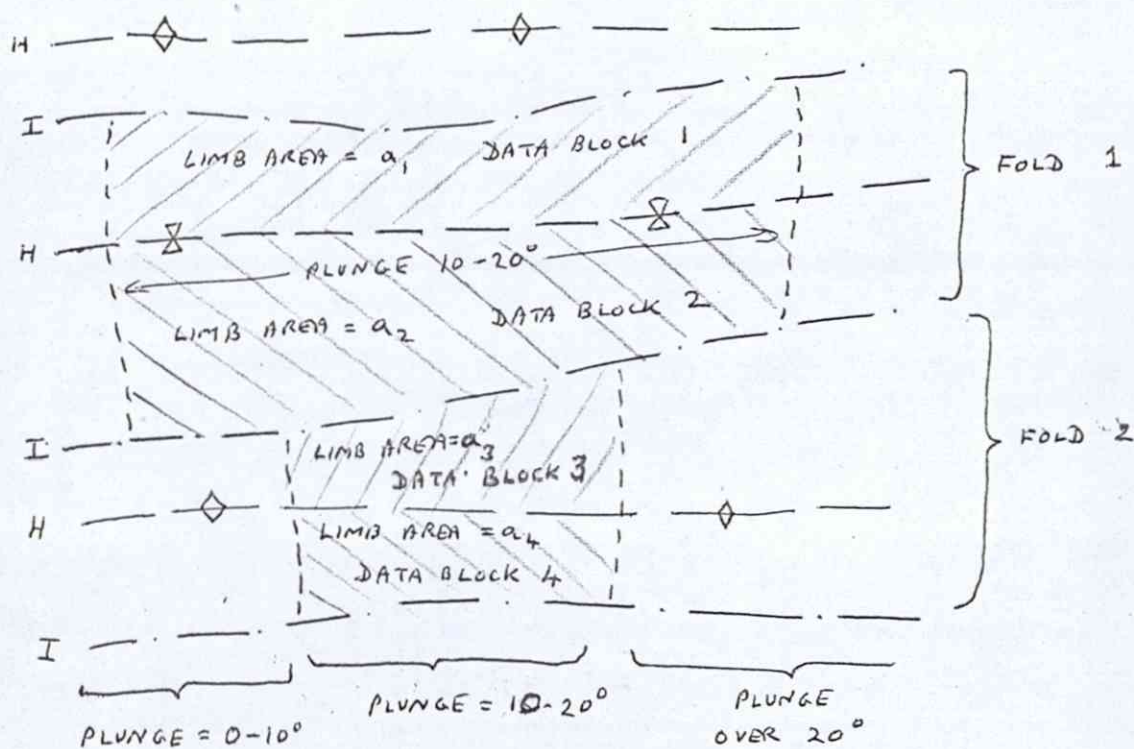 H
I
LIMB AREA = a₁ DATA BLOCK 1
FOLD 1
H
PLUNGE 10-20°
LIMB AREA = a₂ DATA BLOCK 2
I
LIMB AREA = a₃
DATA BLOCK 3
FOLD 2
H
LIMB AREA = a₄
DATA BLOCK 4
I
PLUNGE = 0-10°
PLUNGE = 10-20°
PLUNGE
OVER 20°